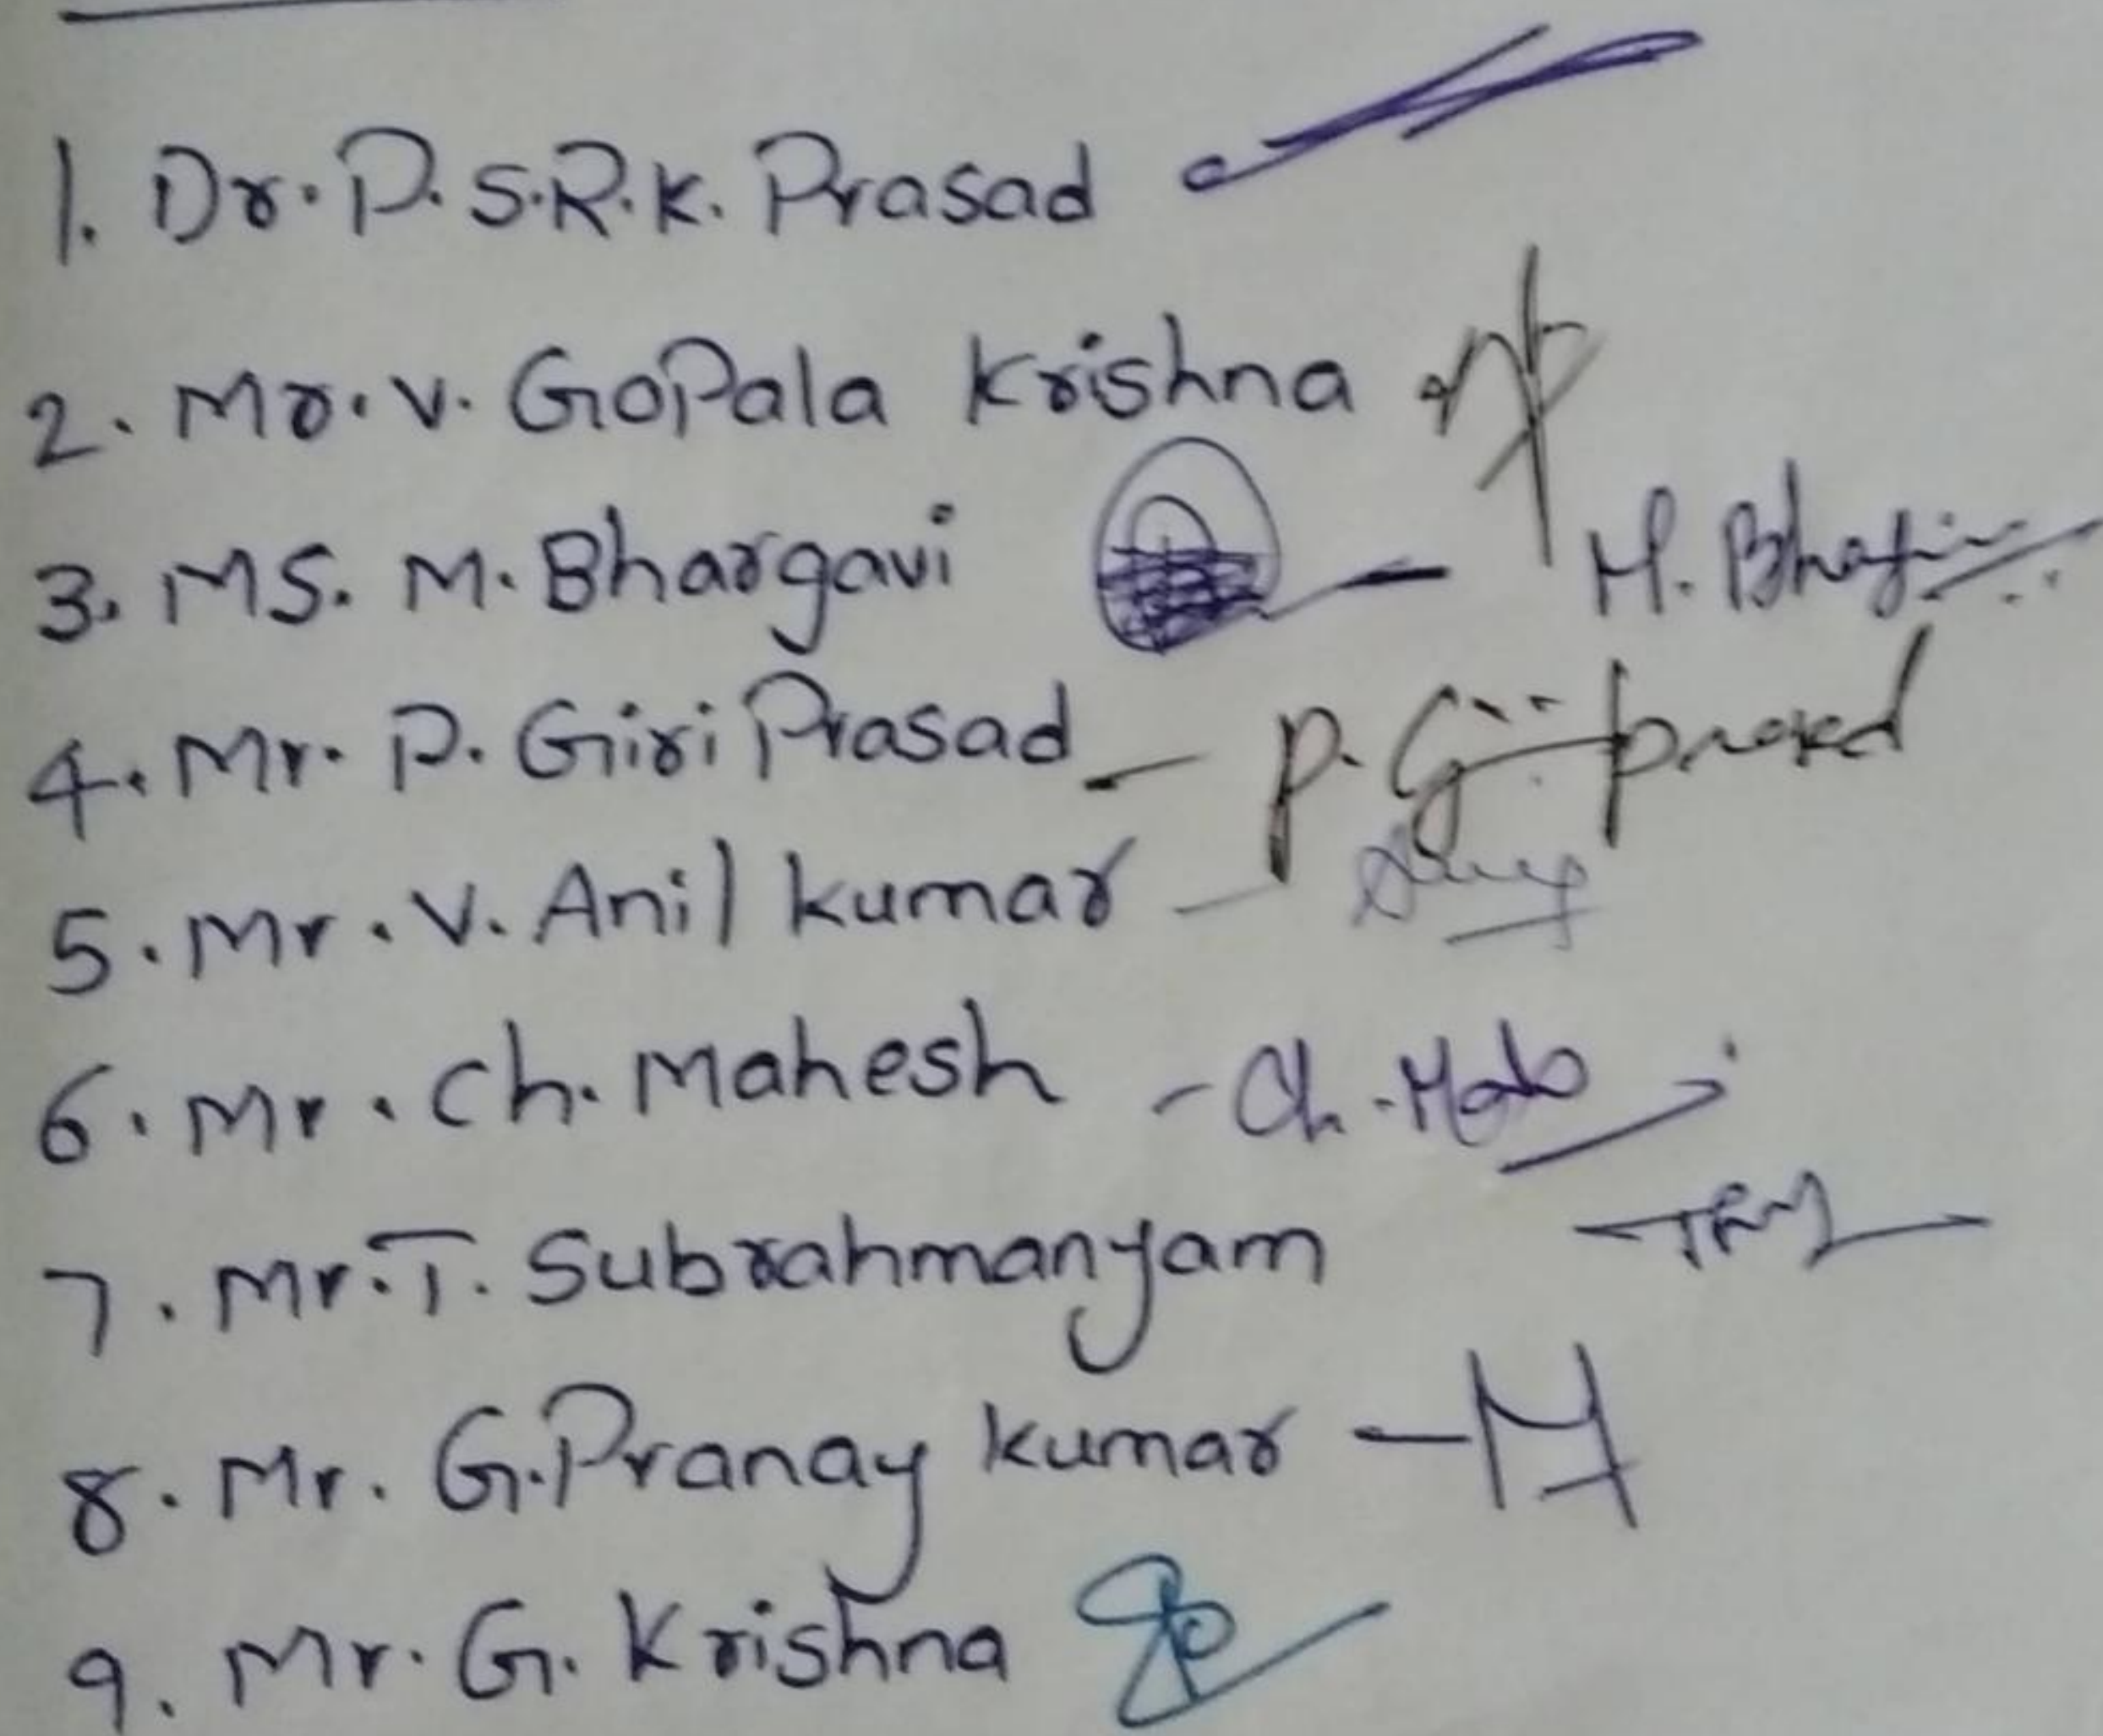 1. Dr. P. S.R.K. Prasad
2. Mr. V. GoPala Krishna
3. MS. M. Bhargavi M.
4. Mr. P. Giri Prasad - P. Giri prasad
5. Mr. V. Anil kumar -
6. Mr. Ch. Mahesh - Ch.
7. Mr. T. Subrahmanyam
8. Mr. G. Pranay kumar -
9. Mr. G. Krishna